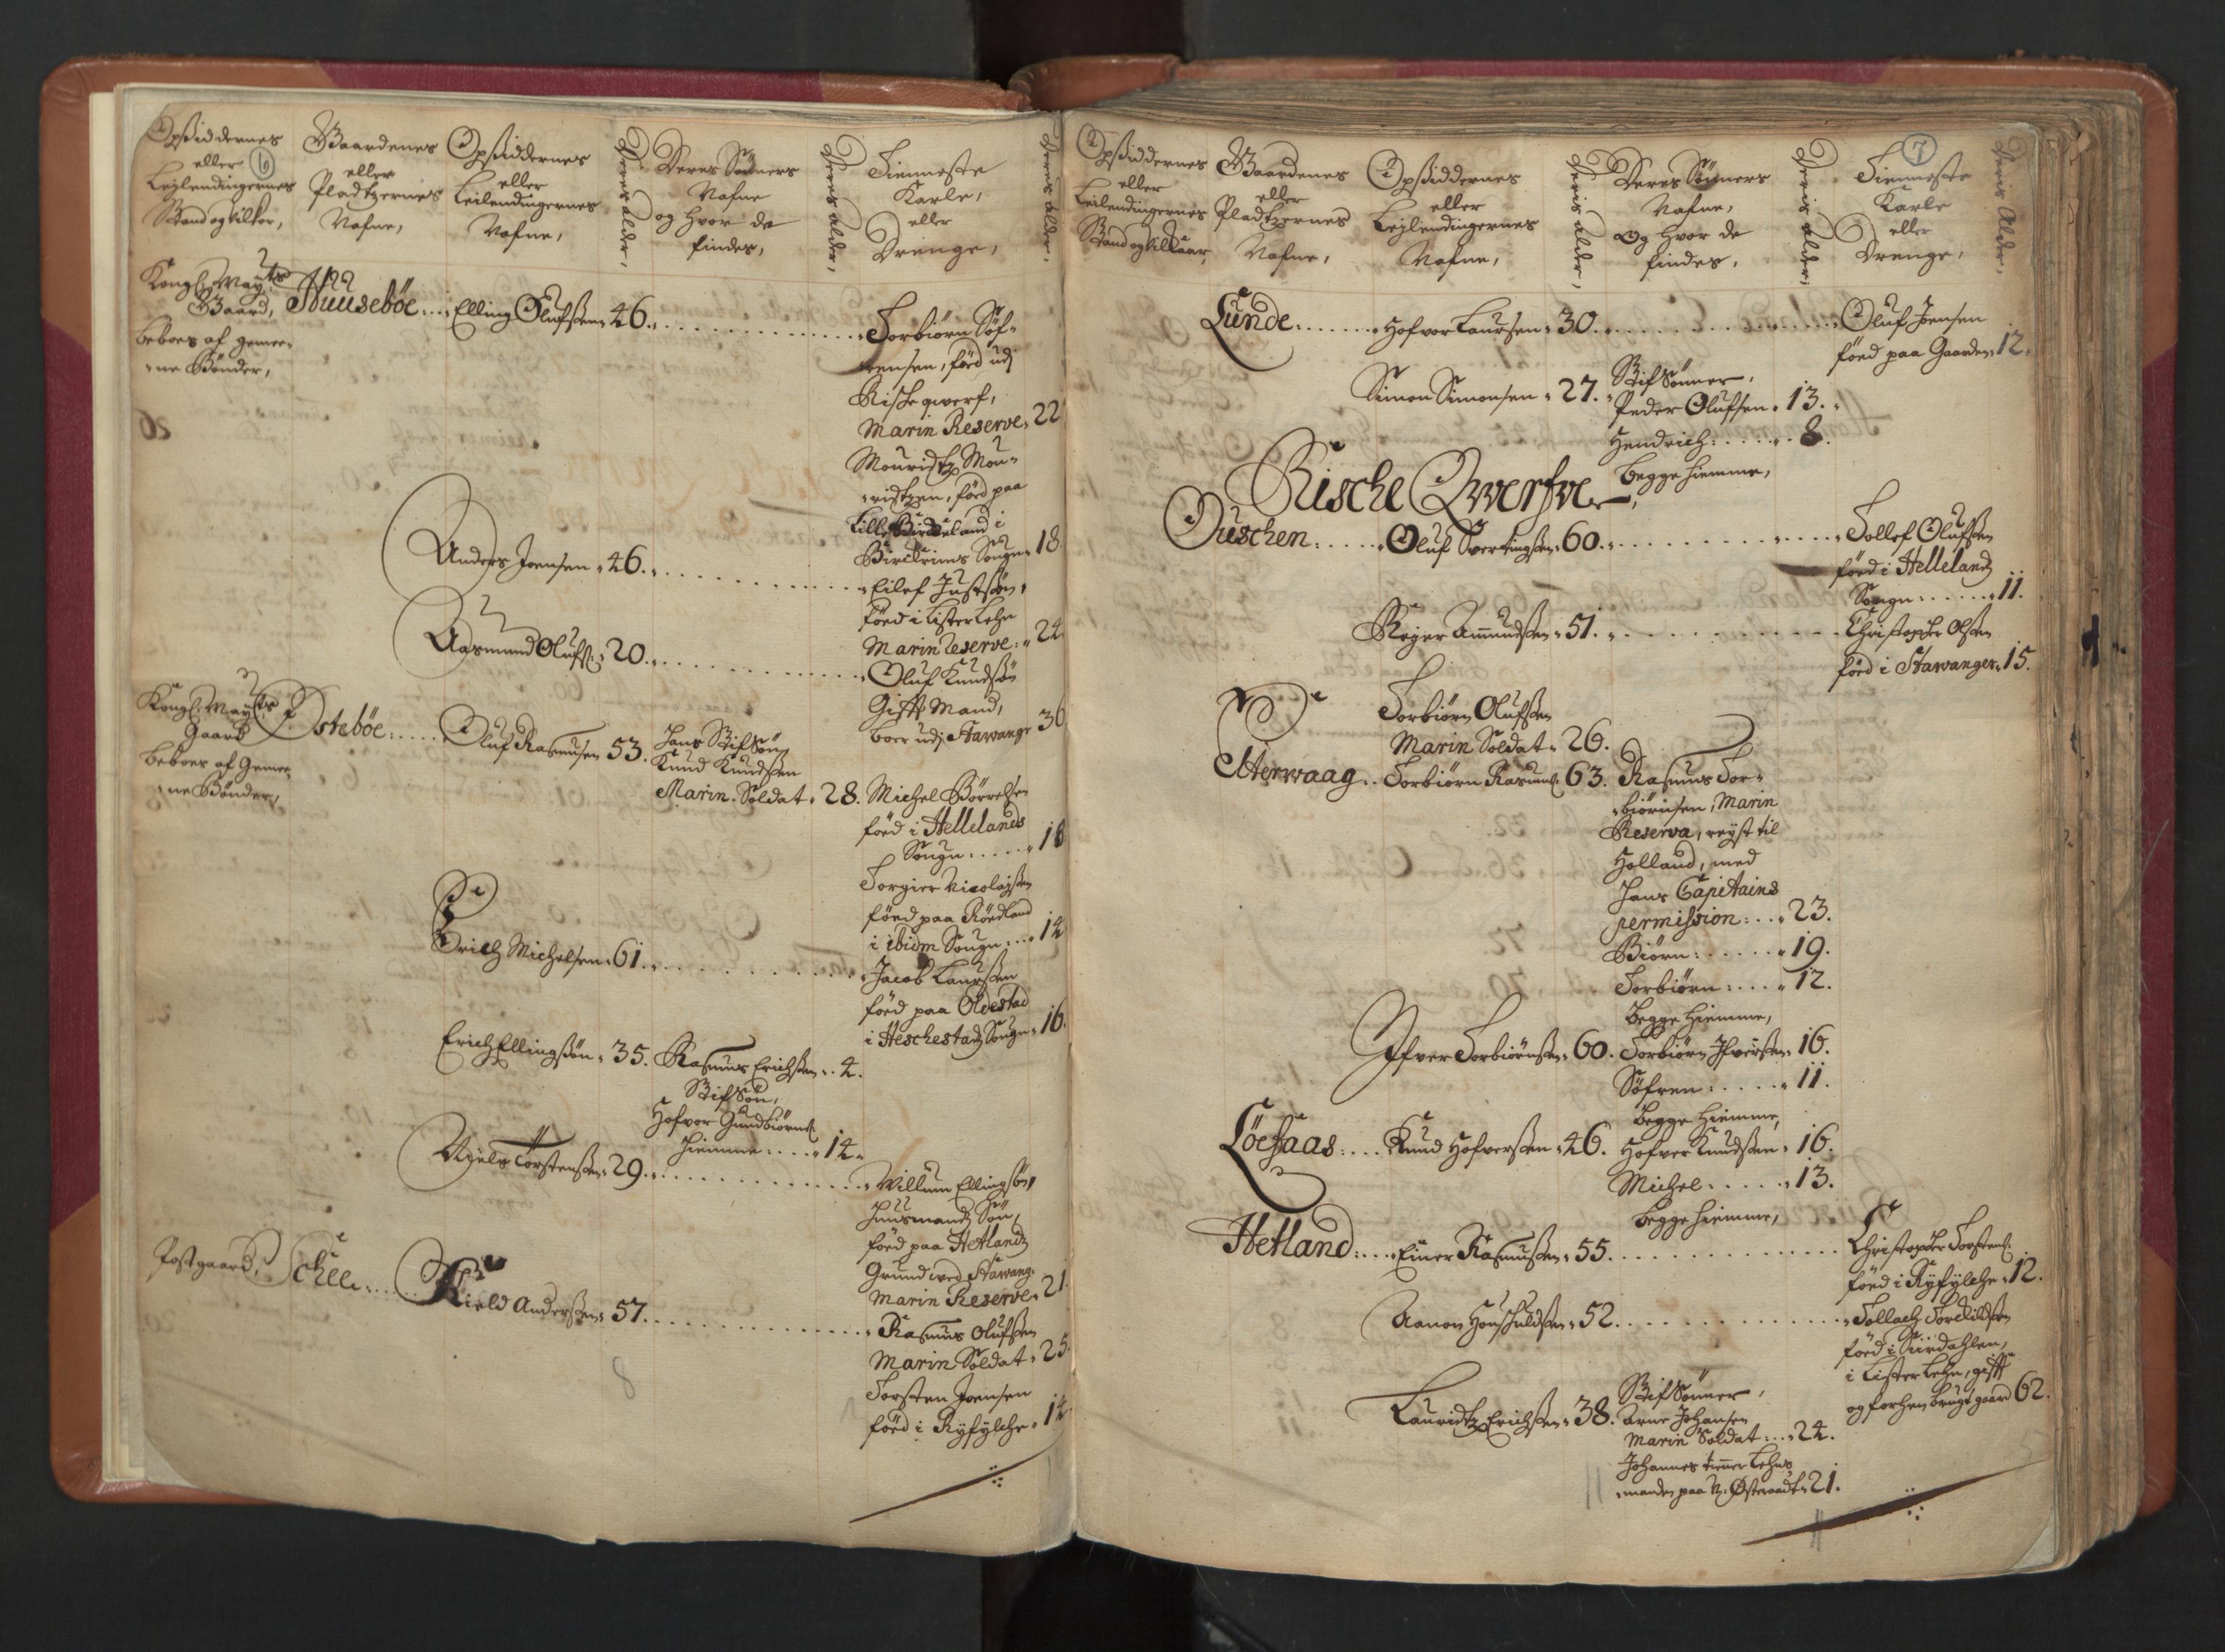 6
Opsiddernes
eller
Leylendingernes
Stand og vilkor,
Gaardenes
eller
Pladtzernes
Nafne,
Opsiddernes
eller
Leilendingernes
Nafne,
Deres alder,
Deres Sønners
Nafne
og hvor de
findes,
Deres alder,
Tienneste
Karle,
eller
Drenge,
Deres alder,
Kongl: Mayts
Gaard,
beboes af gemee-
ne Bønder,
Huusebøe. Elling Olufsen 46.
Torbiørn Søf-
rensen, föed udj
Rische qverf,
Marin Reserve, 22
Mouridtz Mou-
ridtzen, föed paa
Lille Birckeland i
Birckrims Sougn 18.
Anders Joensen 46.
Eilef Justsøn,
föed i Lister Lehn
Marin Reserve: 24
Aasmund Olufs: 20.
Oluf Knudsøn
Gifft Mand,
boer udj Stawanger 36
Kongl: Mayts
Gaard
beboes af Gemee-
ne Bønder,
Østebøe: Oluf Rasmusen 53.
Hans Stifsøn
Knud Knudsen
Marin Soldat 28.
Michel Børrelsen
föed i Hellelands
Sougn 18
Torgier Nicolaysen
föed paa Røedland
i ibidm Sougn 14
Erich Michelsen 61.
Jacob Laursen
föed paa Ollestad
i Heschestad Sougn 16.
Erich Ellingsøn 35. Rasmus Erichsen 4.
Stifsøn,
Hofvor Gundbiørns:
hiemme 14.
Niels Torstensen 29.
Willum Ellingsøn
Huusmands Søn,
föed paa Hetlands
Grund ved Stawang:
Marin Reserve 21.
Postgaard, Schelle: Kield Andersen 57.
Rasmus Olufsen
Marin Soldat 25.
Torsten Joensen
föed i Ryfylche 14
8
7
Opsiddernes
eller
Leilendingernes
Stand og Vilkaar,
Gaardenes
eller
Pladtzernes
Nafne,
Opsiddernes
eller
Leylendingernes
Nafne,
Deris alder,
Deres Sønners
Nafne,
Og hvor de
findes,
Deris alder,
Tienneste
Karle
eller
Drenge,
Deris Alder,
Lunde: Hofvor Laursen 30.
Oluf Joensen
föed paa Gaarden 12.
Simon Simonsen 27.
Stifsønner,
Peder Olufsen 13.
Hendrich: 8.
begge hiemme,
Rische Qwerfve
Ouschen: Oluf Svertingsen 60.
Tollef Olufsen
föed i Hellelands
Sougn: 11.
Reyer Aamundsen 51.
Christopher Olsen
föed i Stawanger 15.
Torbiørn Olufsen
Marin Soldat 26.
Etterwaag Torbiørn Rasmus: 63.
Rasmus Tor-
biørnsen, Marin
Reserva, reyst til
Holland, med
hans Capitains
permission: 23.
Biørn: 19.
Torbiørn: 12.
begge hiemme,
Ifver Torbiørnsen 60. Torbiørn Ifversen 16.
Søfren: 11.
begge hiemme,
Löehaas: Knud Hofversen 46. Hofver Knudsen 16.
Michel: 13.
begge hiemme,
Hetland: Einer Rasmusen 55.
Christopher Torstens:
föed i Ryfylche 12.
Aanon Houschuldsen 52.
Tollach Torckildsen
föed i Siirdahlen,
i Lister Lehn, gifft
og forhen brugt gaard 62.
Lauridtz Erichsen 38.
Stifsønner,
Arne Johansen
Marin Soldat: 24.
Johannes tienner Lehns
manden paa N: Østeraadt 21.
11